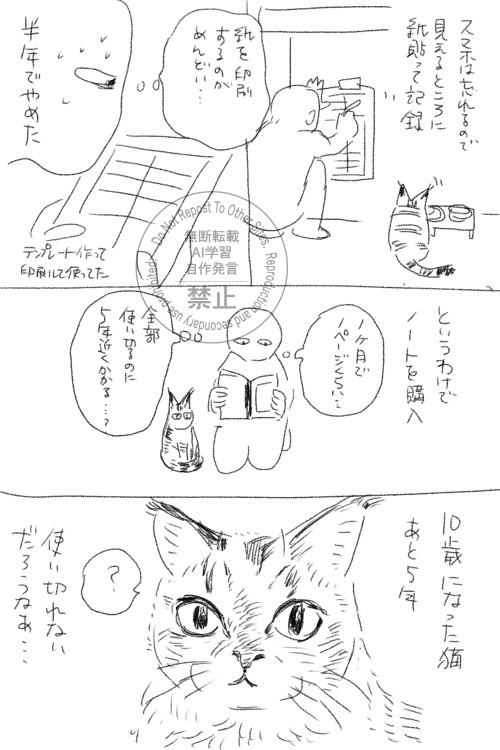 スマホは忘れるので
見えるところに
紙貼って記録
紙を印刷
するのが
めんどい…
半年でやめた
テンプレート作って
印刷して使ってた
Do Not Repost To Other Sites.
Reproduction and secondary use prohibited
無断転載
AI学習
自作発言
禁止
というわけで
ノートを購入
1ヶ月で
1ページくらい…
全部
使い切るのに
5年近くかかる…?
10歳になった猫
あと5年
?
使い切れない
だろうなぁ…